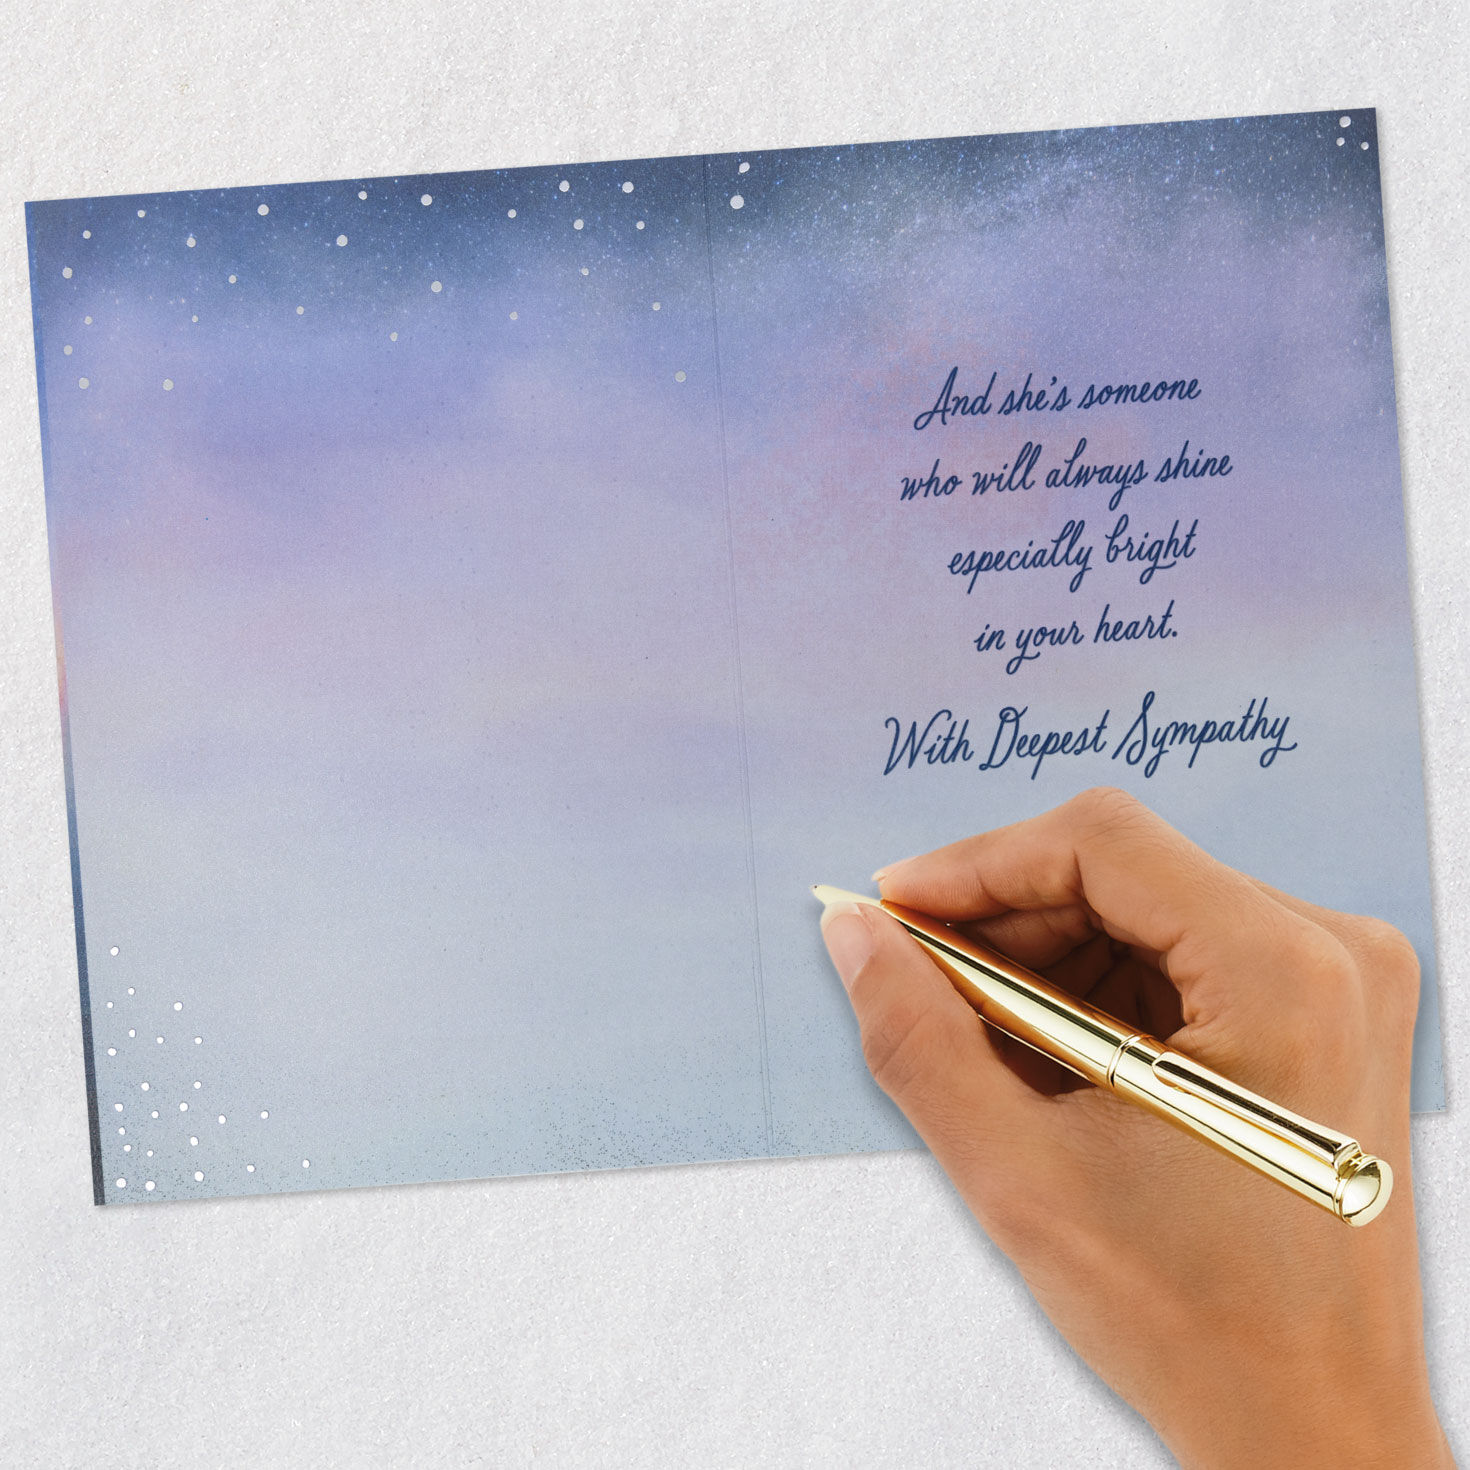 And she's someone
who will always shine
especially bright
in your heart.
With Deepest Sympathy